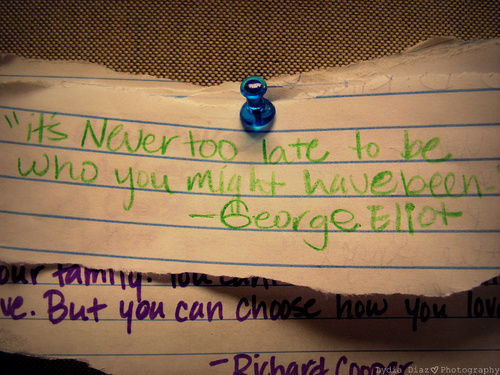 "it's Never too late to be
who you might have been."
-George Eliot
our family. You can
ve. But you can choose how you lov
-Richard Cooper
Lydia Diaz♡Photography